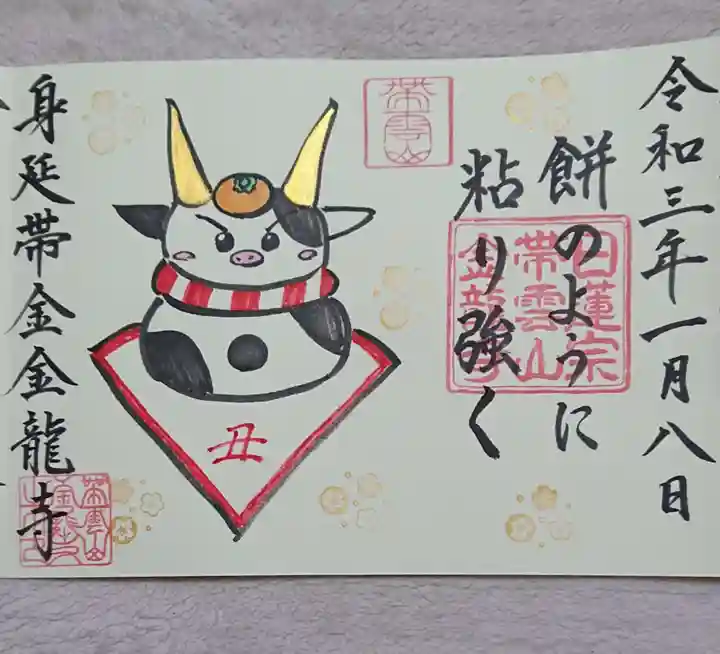 令和三年一月八日
餅のように
粘り強く
日蓮宗
帯雲山
金龍寺
帯雲山
丑
身延帯金金龍寺